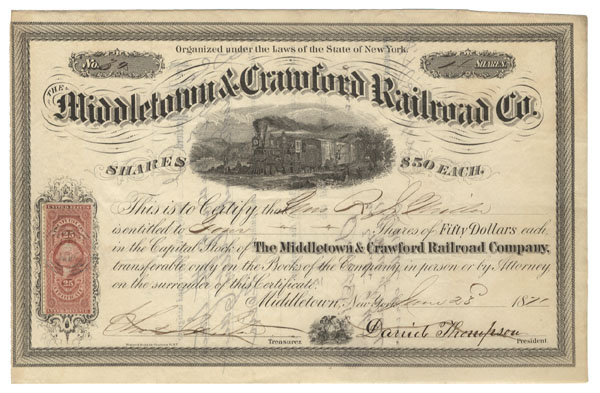 Organized under the Laws of the State of New York.
No. 32
SHARES.
THE
Middletown & Crawford Railroad Co.
SHARES $50 EACH.
This is to Certify that
is entitled to Four Shares of Fifty Dollars each
in the Capital Stock of The Middletown & Crawford Railroad Company,
transferable only on the Books of the Company, in person or by Attorney
on the surrender of this Certificate.
Middletown, New York 1871
Treasurer
Daniel Thompson
President
25 25